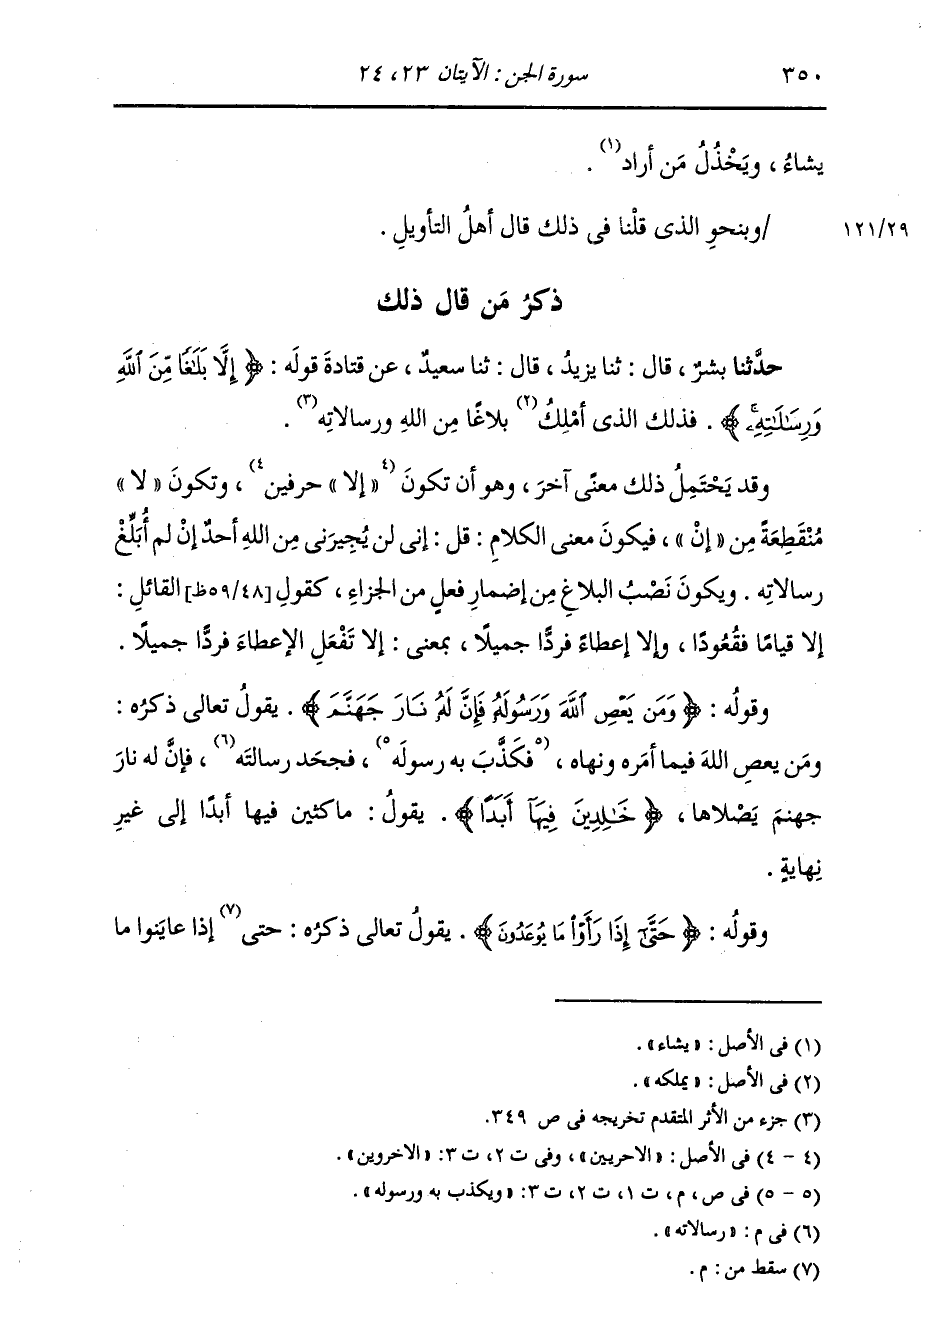 ٣٥٠ سورة الجن : الآيتان ٢٣، ٢٤
يشاءُ ، ويَخْذُلُ مَن أراد(١) .
١٢١/٢٩ /وبنحوِ الذى قلْنا فى ذلك قال أهلُ التأويلِ .
ذكرُ مَن قال ذلك
حدَّثنا بشرٌ ، قال : ثنا يزيدُ ، قال : ثنا سعيدٌ ، عن قتادةَ قولَه : ﴿ إِلَّا بَلَٰغًا مِّنَ ٱللَّهِ
وَرِسَٰلَٰتِهِۦۚ ﴾ . فذلك الذى أمْلِكُ(٢) بلاغًا مِن اللهِ ورسالاتِه(٣) .
وقد يَحْتَمِلُ ذلك معنًى آخرَ ، وهو أن تكونَ (٤« إلا » حرفين٤) ، وتكونَ « لا »
مُنْقَطِعَةً مِن « إنْ » ، فيكونَ معنى الكلامِ : قل : إنى لن يُجِيرَنى مِن اللهِ أحدٌ إنْ لم أُبَلِّغْ
رسالاتِه . ويكونَ نَصْبُ البلاغِ مِن إضمارِ فعلٍ من الجزاءِ ، كقولِ [٥٩/٤٨ظ] القائلِ :
إلا قيامًا فقُعُودًا ، وإلا إعطاءً فردًّا جميلًا ، بمعنى : إلا تَفْعَلِ الإعطاءَ فردًّا جميلًا .
وقولُه : ﴿ وَمَن يَعْصِ ٱللَّهَ وَرَسُولَهُۥ فَإِنَّ لَهُۥ نَارَ جَهَنَّمَ ﴾ . يقولُ تعالى ذكرُه :
ومَن يعصِ اللهَ فيما أمَره ونهاه ، (٥فكَذَّبَ به رسولَه٥) ، فجحَد رسالتَه(٦) ، فإنَّ له نارَ
جهنمَ يَصْلاها ، ﴿ خَٰلِدِينَ فِيهَآ أَبَدًا ﴾ . يقولُ : ماكثين فيها أبدًا إلى غيرِ
نِهايةٍ .
وقولُه : ﴿ حَتَّىٰٓ إِذَا رَأَوْاْ مَا يُوعَدُونَ ﴾ . يقولُ تعالى ذكرُه : حتى(٧) إذا عايَنوا ما
(١) فى الأصل : « يشاء » .
(٢) فى الأصل : « يملكه » .
(٣) جزء من الأثر المتقدم تخريجه فى ص ٣٤٩.
(٤ - ٤) فى الأصل : « الاحريين » ، وفى ت ٢، ت ٣: « الاخروين » .
(٥ - ٥) فى ص ، م ، ت ١، ت ٢، ت ٣: « ويكذب به ورسوله » .
(٦) فى م : « رسالاته » .
(٧) سقط من : م .